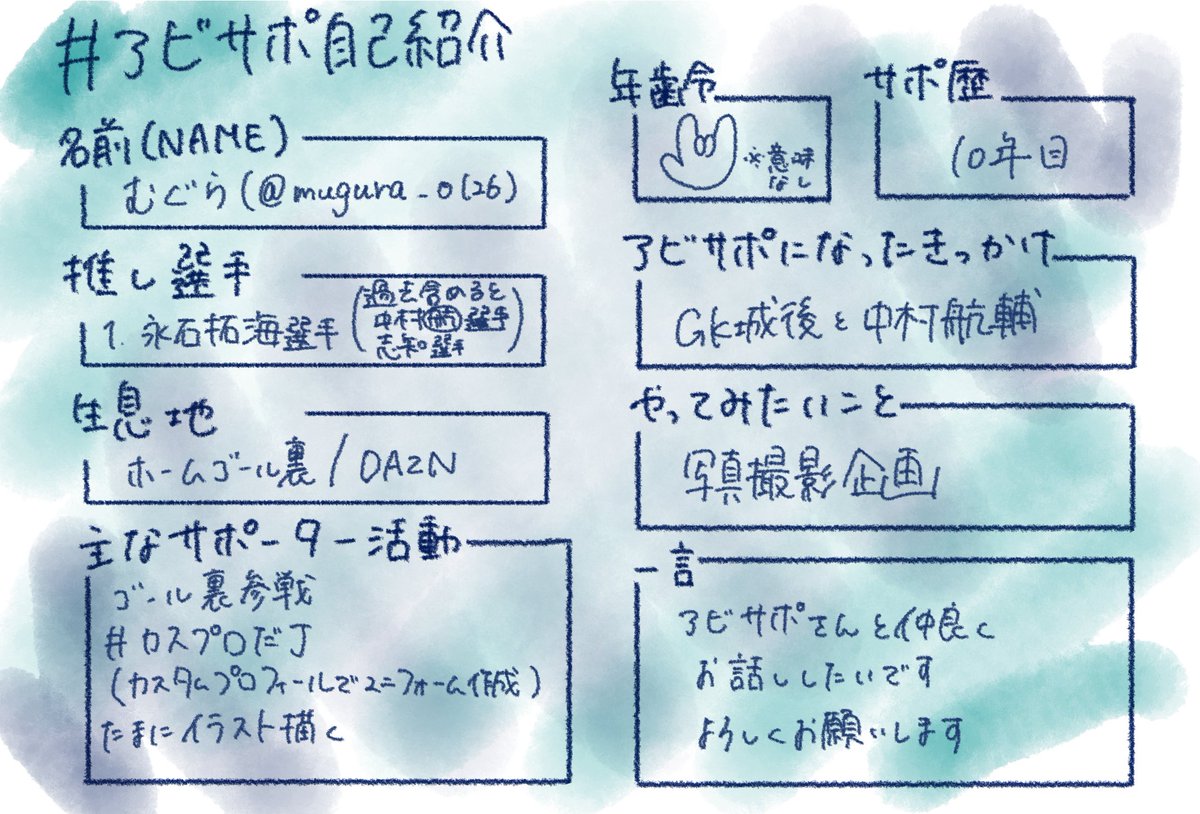 #アビサポ自己紹介
名前(NAME)
むぐら(@mugura_0126)
推し選手
1.永石拓海選手(過去含めると
中村航選手
志知選手)
生息地
ホームゴール裏/DAZN
主なサポーター活動
ゴール裏参戦
#カスプロだJ
(カスタムプロフィールでユニフォーム作成)
たまにイラスト描く
年齢
※意味
なし
サポ歴
10年目
アビサポになったきっかけ
GK城後と中村航輔
やってみたいこと
写真撮影企画
一言
アビサポさんと仲良く
お話ししたいです
よろしくお願いします